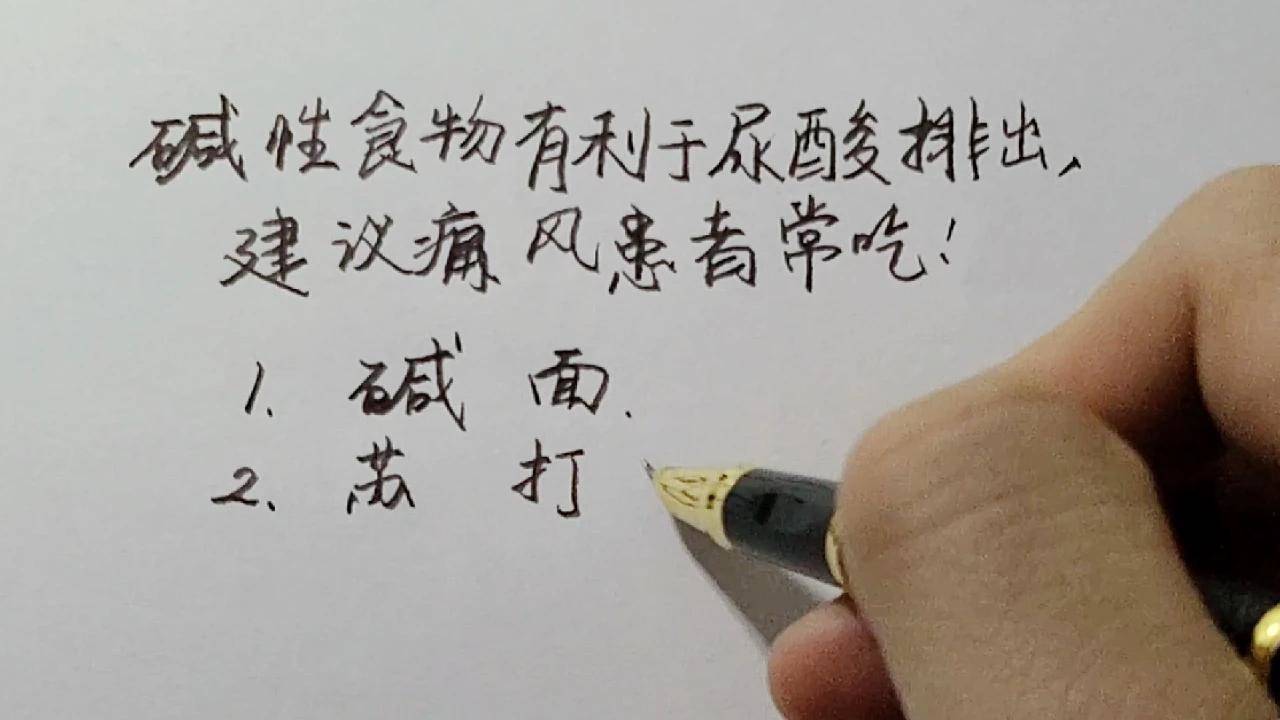 碱性食物有利于尿酸排出,
建议痛风患者常吃!
1. 碱面.
2. 苏打